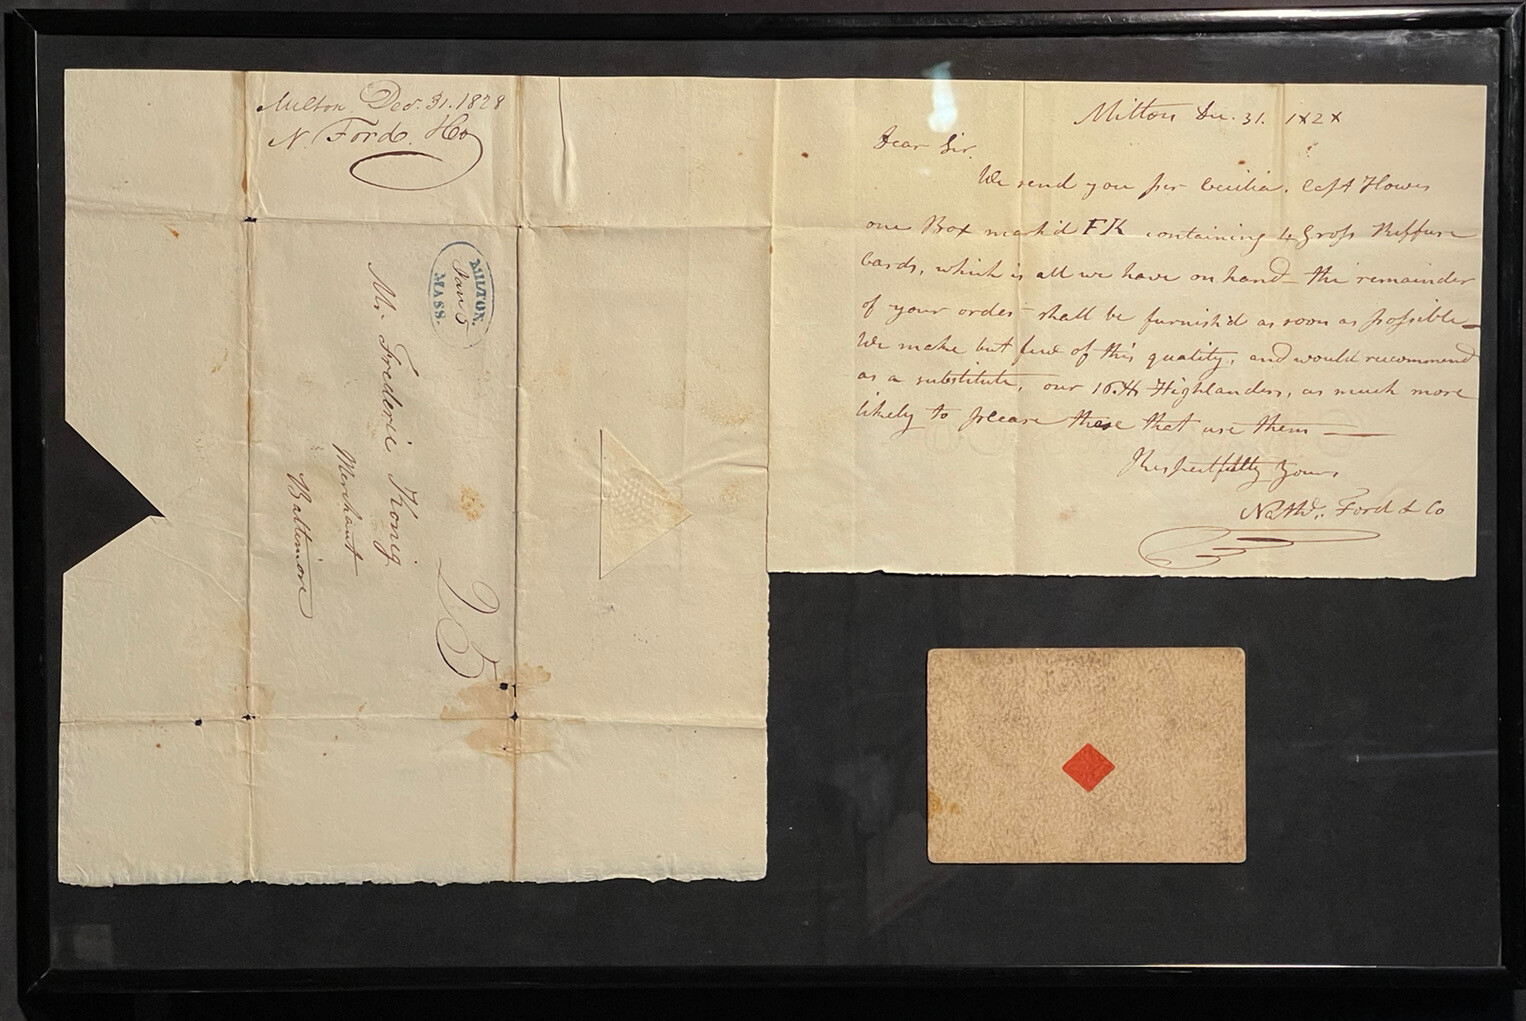 Milton Dec. 31. 1828
N. Ford. & Co
MILTON.
Jan 5
MASS.
Mr. Frederic Konig
Merchant
Baltimore
25
Milton Dec. 31. 1828
Dear Sir.
We send you per Cecilia, Capt Howes
one Box mark'd FK containing 4 Gross
Cards, which is all we have on hand – the remainder
of your order – shall be furnish'd as soon as possible –
We make but few of this quality, and would recommend
as a substitute, our Highlanders, as much more
likely to please those that use them —
Respectfully Yours
Nathl. Ford & Co